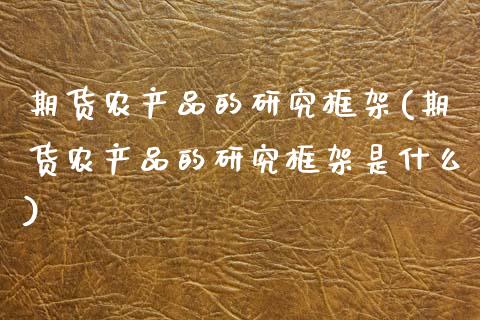 期货农产品的研究框架(期
货农产品的研究框架是什么
)